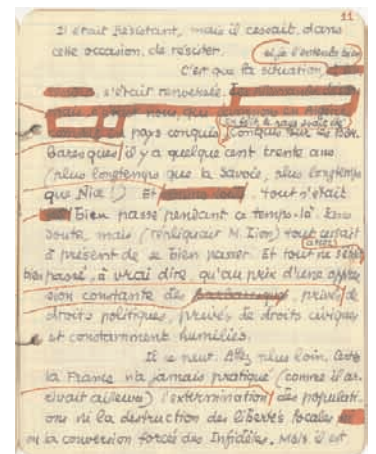 11
Il était Résistant, mais il cessait, dans
cette occasion, de résister.
et je l'entends bien
C'est que la situation,
s'était renversée.
nous, que
pays conquis. Conquis sur les Bar-
baresques il y a quelque cent trente ans
(plus longtemps que la Savoie, plus longtemps
que Nice!) Et tout s'était
bien passé pendant ce temps-là. Sans
doute, mais (répliquait M. Lion) tout cessait
à présent de se bien passer. Et tout ne s'était
bien passé, à vrai dire, qu'au prix d'une oppres-
sion constante des privés de
droits politiques, privés de droits civiques
et constamment humiliés.
Il se peut. Allez plus loin. Certes
la France n'a jamais pratiqué (comme il ar-
rivait ailleurs) l'extermination des populati-
ons ni la destruction des libertés locales
ni la conversion forcée des Infidèles. Mais il est